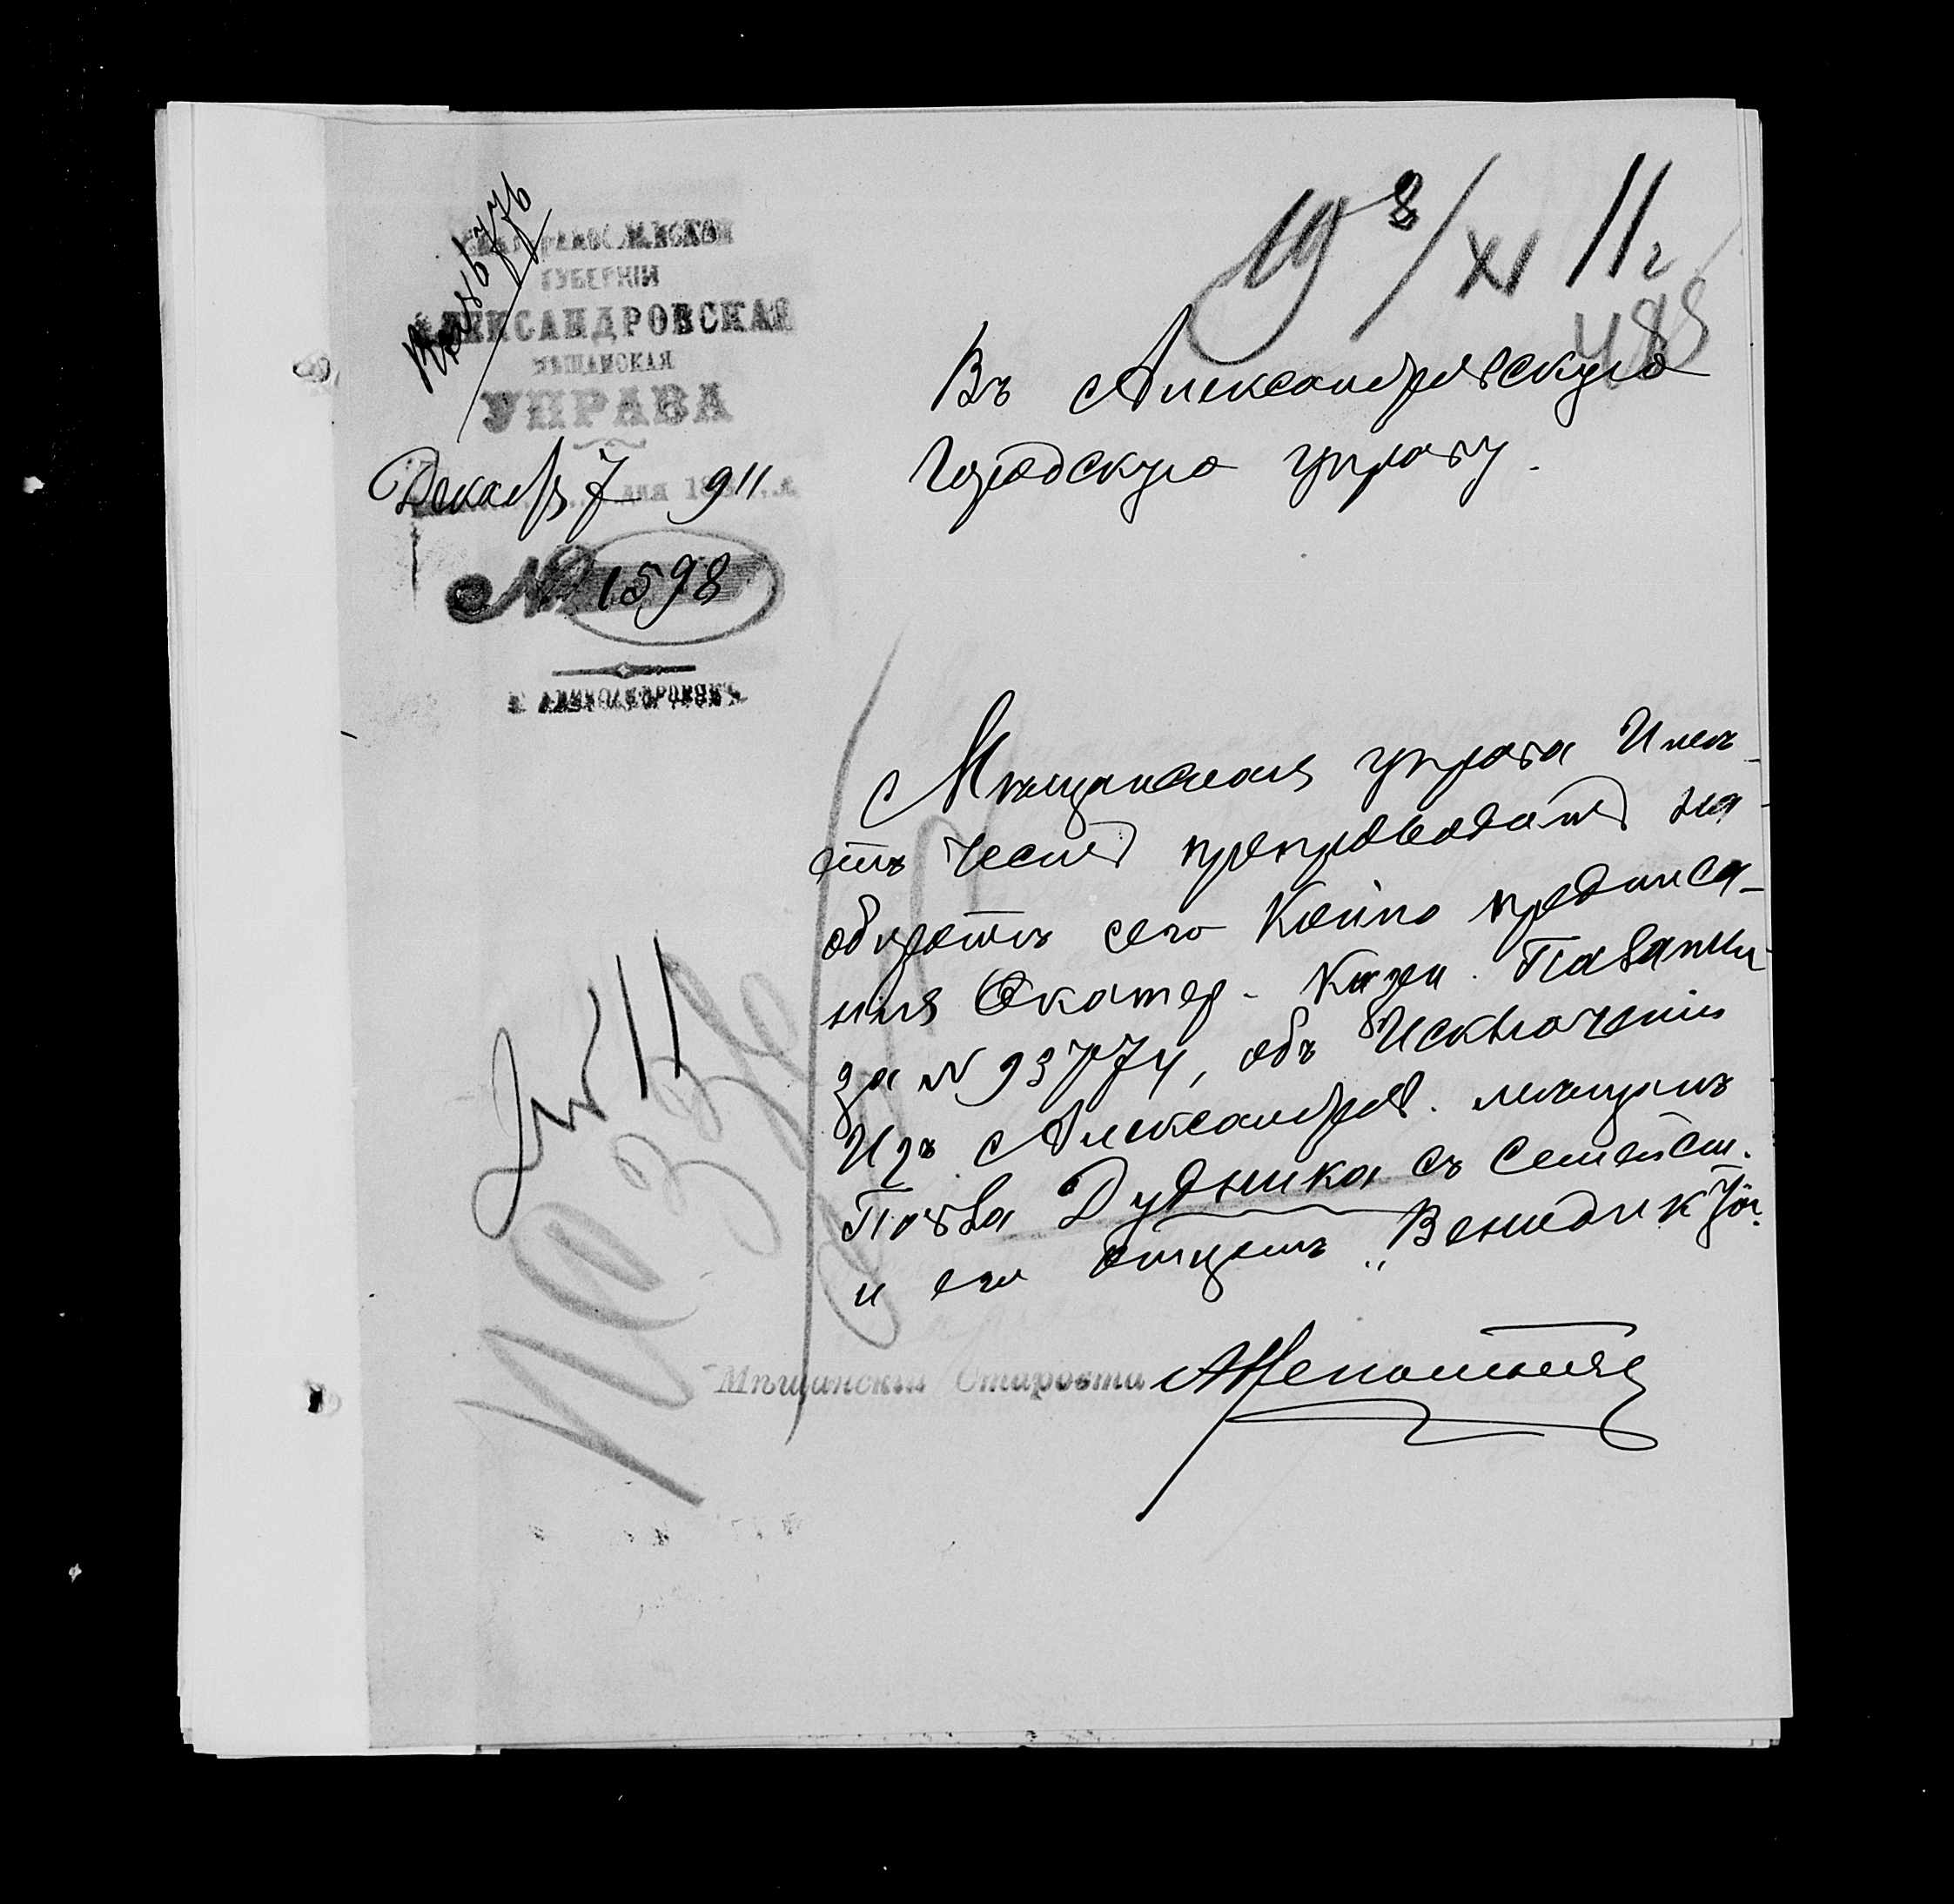 ЕКАТЕРИНОСЛАВСКОЙ
ГУБЕРНІИ
АЛЕКСАНДРОВСКАЯ
МѢЩАНСКАЯ
УПРАВА
Декабря 7 дня 911
№ 1598
Г. АЛЕКСАНДРОВСКЪ
19 8/XI 11 г
488
Въ Александровскую
Городскую управу.
Мѣщанская управа Имѣ-
етъ честь препроводить на
оборотѣ сего Копію предписа-
нія Екатер. Казен. Палаты
за № 93774, объ Исключеніи
Изъ Александров. мѣщанъ
Дудника съ семейст.
и его отцемъ
Мѣщанскій Староста